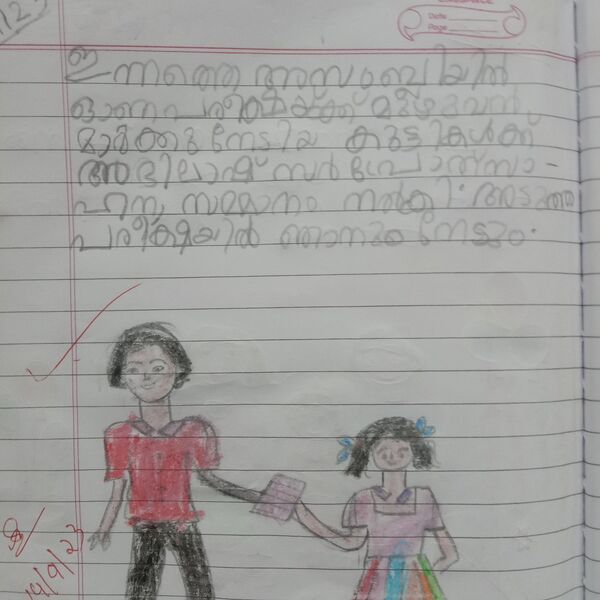 Date
Page
ഇന്നത്തെ അസംബ്ലിയിൽ
ഓണപരീക്ഷയ്ക്ക് മുഴുവൻ
മാർക്കു നേടിയ കുട്ടികൾക്ക്
അഭിലാഷ് സർ പ്രോത്സാ-
ഹന സമ്മാനം നൽകി. അടുത്ത
പരീക്ഷയിൽ ഞാനും നേടും.
19/9/23